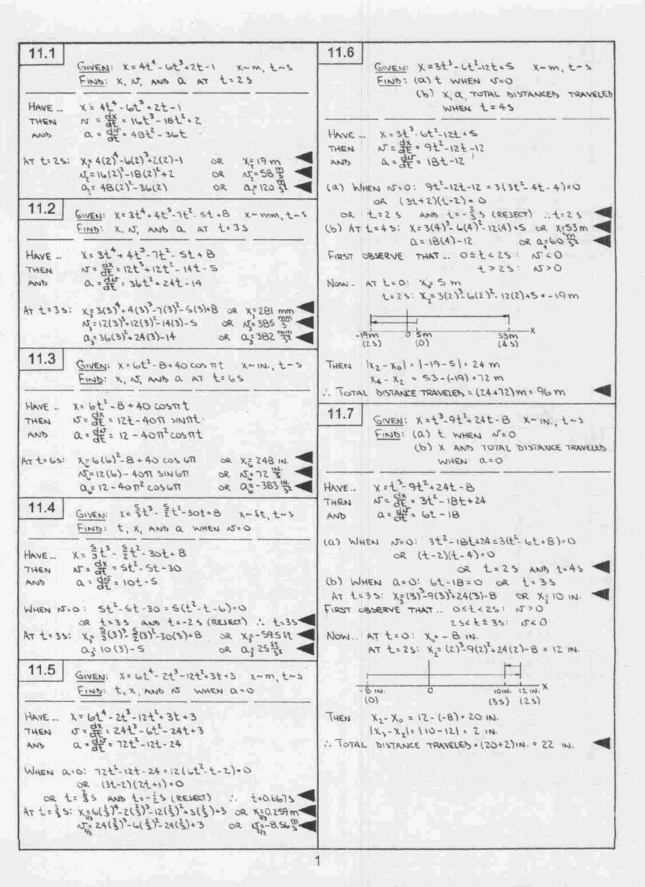 11.1
GIVEN: x = 4t⁴ - 6t³ + 2t - 1   x ~ m, t ~ s
FIND: x, v, AND a AT t = 2 s
HAVE.. x = 4t⁴ - 6t³ + 2t - 1
THEN v = dx/dt = 16t³ - 18t² + 2
AND a = dv/dt = 48t² - 36t
AT t=2s: x₂ = 4(2)⁴ - 6(2)³ + 2(2) - 1 OR x₂ = 19 m
v₂ = 16(2)³ - 18(2)² + 2 OR v₂ = 58 m/s
a₂ = 48(2)² - 36(2) OR a₂ = 120 m/s²
11.2
GIVEN: x = 3t⁴ + 4t³ - 7t² - 5t + 8 x ~ mm, t ~ s
FIND: x, v, AND a AT t = 3 s
HAVE.. x = 3t⁴ + 4t³ - 7t² - 5t + 8
THEN v = dx/dt = 12t³ + 12t² - 14t - 5
AND a = dv/dt = 36t² + 24t - 14
AT t=3s: x₃ = 3(3)⁴ + 4(3)³ - 7(3)² - 5(3) + 8 OR x₃ = 281 mm
v₃ = 12(3)³ + 12(3)² - 14(3) - 5 OR v₃ = 385 mm/s
a₃ = 36(3)² + 24(3) - 14 OR a₃ = 382 mm/s²
11.3
GIVEN: x = 6t² - 8 + 40 cos πt x ~ IN., t ~ s
FIND: x, v, AND a AT t = 6 s
HAVE.. x = 6t² - 8 + 40 cos πt
THEN v = dx/dt = 12t - 40π sin πt
AND a = dv/dt = 12 - 40π² cos πt
AT t=6s: x₆ = 6(6)² - 8 + 40 cos 6π OR x₆ = 248 IN.
v₆ = 12(6) - 40π sin 6π OR v₆ = 72 IN./s
a₆ = 12 - 40π² cos 6π OR a₆ = -383 IN./s²
11.4
GIVEN: x = 5/3 t³ - 5/2 t² - 30t + 8 x ~ ft, t ~ s
FIND: t, x, AND a WHEN v = 0
HAVE.. x = 5/3 t³ - 5/2 t² - 30t + 8
THEN v = dx/dt = 5t² - 5t - 30
AND a = dv/dt = 10t - 5
WHEN v=0: 5t² - 5t - 30 = 5(t² - t - 6) = 0
OR t = 3 s AND t = -2 s (REJECT) ∴ t = 3 s
AT t=3s: x₃ = 5/3(3)³ - 5/2(3)² - 30(3) + 8 OR x₃ = -59.5 ft
a₃ = 10(3) - 5 OR a₃ = 25 ft/s²
11.5
GIVEN: x = 6t⁴ - 2t³ - 12t² + 3t + 3 x ~ m, t ~ s
FIND: t, x, AND v WHEN a = 0
HAVE.. x = 6t⁴ - 2t³ - 12t² + 3t + 3
THEN v = dx/dt = 24t³ - 6t² - 24t + 3
AND a = dv/dt = 72t² - 12t - 24
WHEN a=0: 72t² - 12t - 24 = 12(6t² - t - 2) = 0
OR (3t - 2)(2t + 1) = 0
OR t = 2/3 s AND t = -1/2 s (REJECT) ∴ t = 0.667 s
AT t = 2/3 s: x₂/₃ = 6(2/3)⁴ - 2(2/3)³ - 12(2/3)² + 3(2/3) + 3 OR x₂/₃ = 0.259 m
v₂/₃ = 24(2/3)³ - 6(2/3)² - 24(2/3) + 3 OR v₂/₃ = -8.56 m/s
11.6
GIVEN: x = 3t³ - 6t² - 12t + 5 x ~ m, t ~ s
FIND: (a) t WHEN v = 0
(b) x, a, TOTAL DISTANCE TRAVELED
WHEN t = 4 s
HAVE.. x = 3t³ - 6t² - 12t + 5
THEN v = dx/dt = 9t² - 12t - 12
AND a = dv/dt = 18t - 12
(a) WHEN v=0: 9t² - 12t - 12 = 3(3t² - 4t - 4) = 0
OR (3t + 2)(t - 2) = 0
OR t = 2 s AND t = -2/3 s (REJECT) ∴ t = 2 s
(b) AT t=4s: x₄ = 3(4)³ - 6(4)² - 12(4) + 5 OR x₄ = 53 m
a₄ = 18(4) - 12 OR a₄ = 60 m/s²
FIRST OBSERVE THAT.. 0 ≤ t < 2s: v < 0
t > 2s: v > 0
NOW.. AT t=0: x₀ = 5 m
t=2s: x₂ = 3(2)³ - 6(2)² - 12(2) + 5 = -19 m
-19m 0 5m 53m x
(2s) (0) (4s)
THEN |x₂ - x₀| = |-19 - 5| = 24 m
x₄ - x₂ = 53 - (-19) = 72 m
∴ TOTAL DISTANCE TRAVELED = (24 + 72) m = 96 m
11.7
GIVEN: x = t³ - 9t² + 24t - 8 x ~ IN., t ~ s
FIND: (a) t WHEN v = 0
(b) x AND TOTAL DISTANCE TRAVELED
WHEN a = 0
HAVE.. x = t³ - 9t² + 24t - 8
THEN v = dx/dt = 3t² - 18t + 24
AND a = dv/dt = 6t - 18
(a) WHEN v=0: 3t² - 18t + 24 = 3(t² - 6t + 8) = 0
OR (t - 2)(t - 4) = 0
OR t = 2 s AND t = 4 s
(b) WHEN a=0: 6t - 18 = 0 OR t = 3 s
AT t=3s: x₃ = (3)³ - 9(3)² + 24(3) - 8 OR x₃ = 10 IN.
FIRST OBSERVE THAT.. 0 ≤ t < 2s: v > 0
2s < t ≤ 3s: v < 0
NOW.. AT t=0: x₀ = -8 IN.
AT t=2s: x₂ = (2)³ - 9(2)² + 24(2) - 8 = 12 IN.
-8 IN. 0 10 IN. 12 IN. x
(0) (3s) (2s)
THEN x₂ - x₀ = 12 - (-8) = 20 IN.
|x₃ - x₂| = |10 - 12| = 2 IN.
∴ TOTAL DISTANCE TRAVELED = (20 + 2) IN. = 22 IN.
1